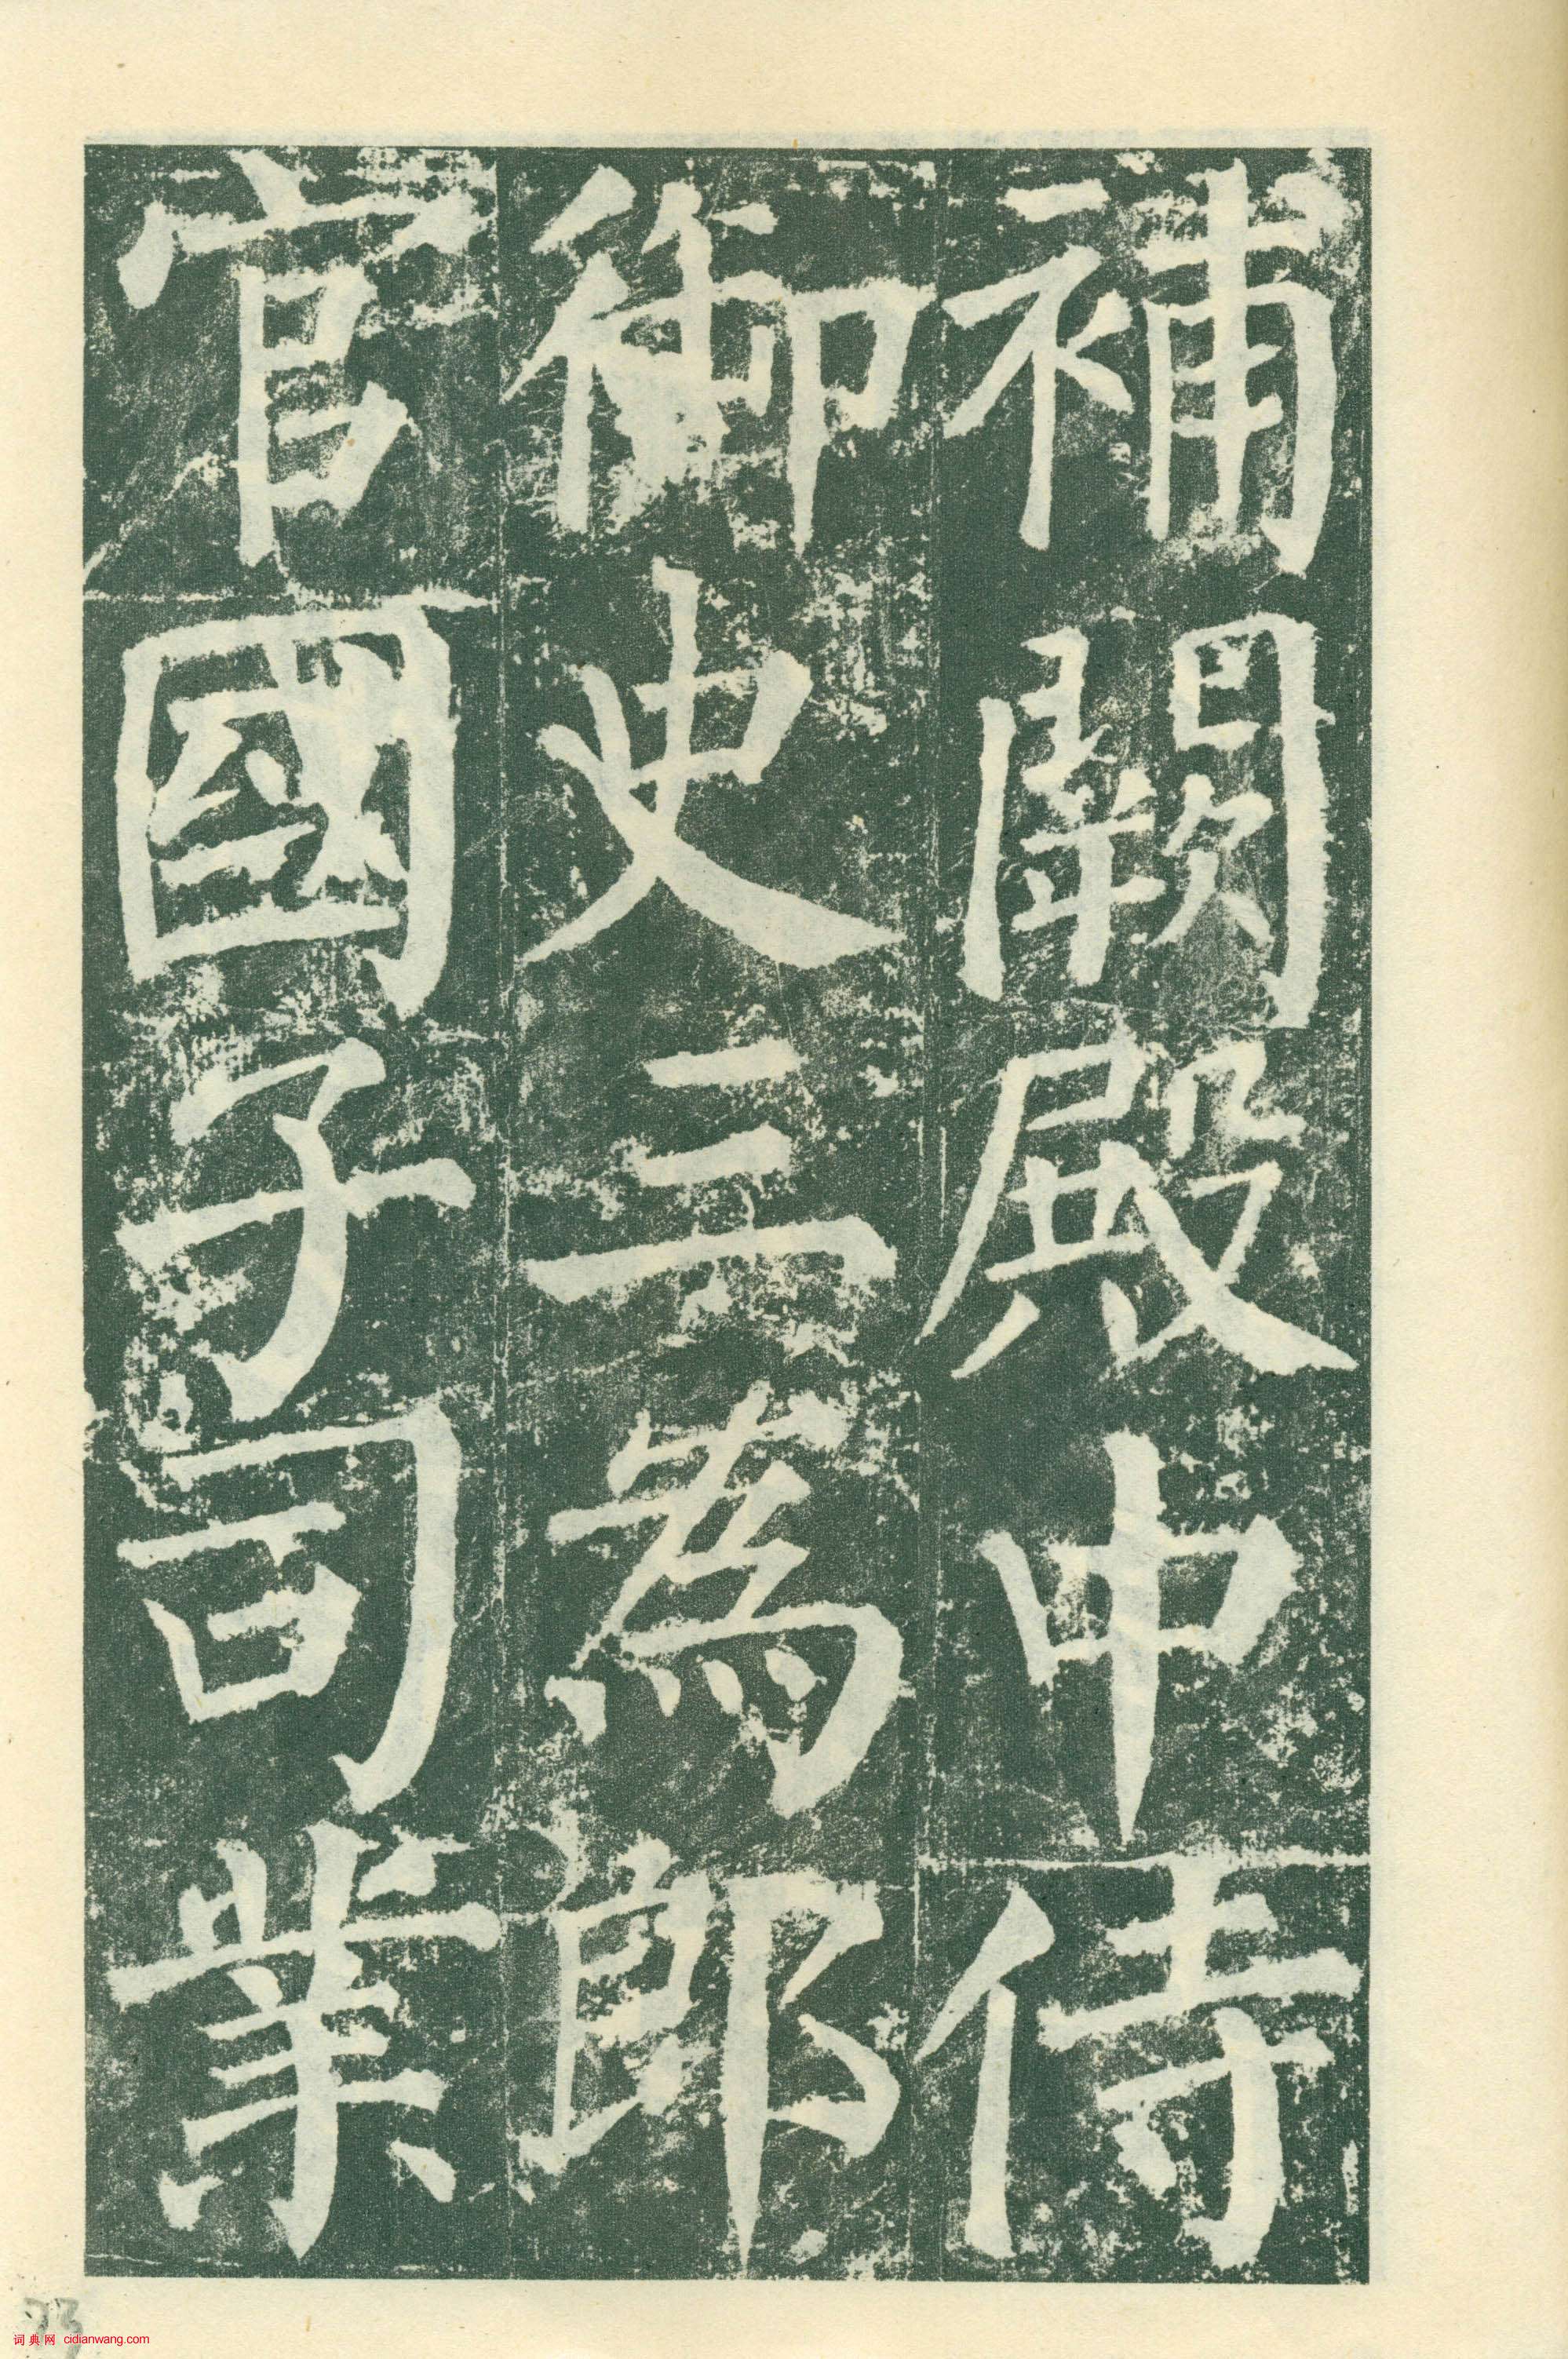 補闕殿中侍
御史三為郎
官國子司業
词典网 cidianwang.com